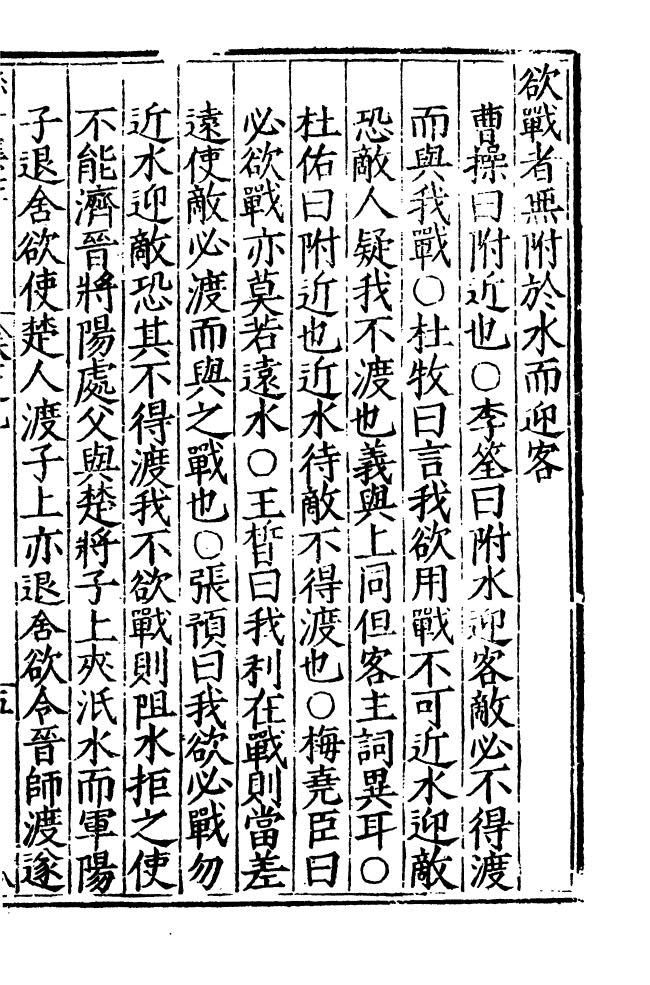 欲戰者無附於水而迎客
曹操曰附近也○李筌曰附水迎客敵必不得渡
而與我戰○杜牧曰言我欲用戰不可近水迎敵
恐敵人疑我不渡也義與上同但客主詞異耳○
杜佑曰附近也近水待敵不得渡也○梅堯臣曰
必欲戰亦莫若遠水○王晳曰我利在戰則當差
遠使敵必渡而與之戰也○張預曰我欲必戰勿
近水迎敵恐其不得渡我不欲戰則阻水拒之使
不能濟晉將陽處父與楚將子上夾泜水而軍陽
子退舍欲使楚人渡子上亦退舍欲令晉師渡遂